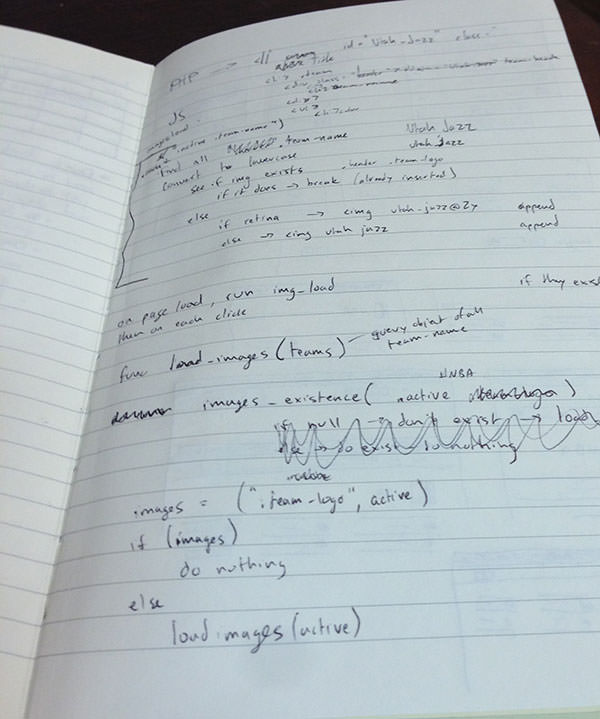 PHP → <li id="Utah-Jazz" class="
title
<div class="header"
team-name
JS
active .team-name")
find all .team-name Utah Jazz
convert to lowercase utah jazz
see if img exists .header .team-logo
if it does → break (already inserted)
else if retina → <img utah-jazz@2x append
else → <img utah jazz append
on page load, run img_load if they exist
then on each click
func load_images(teams) — query object of all
team-name
NBA
images_existence( active )
if null → don't exist → load
else → do exist do nothing
images = (".team-logo", active)
if (images)
do nothing
else
load images(active)